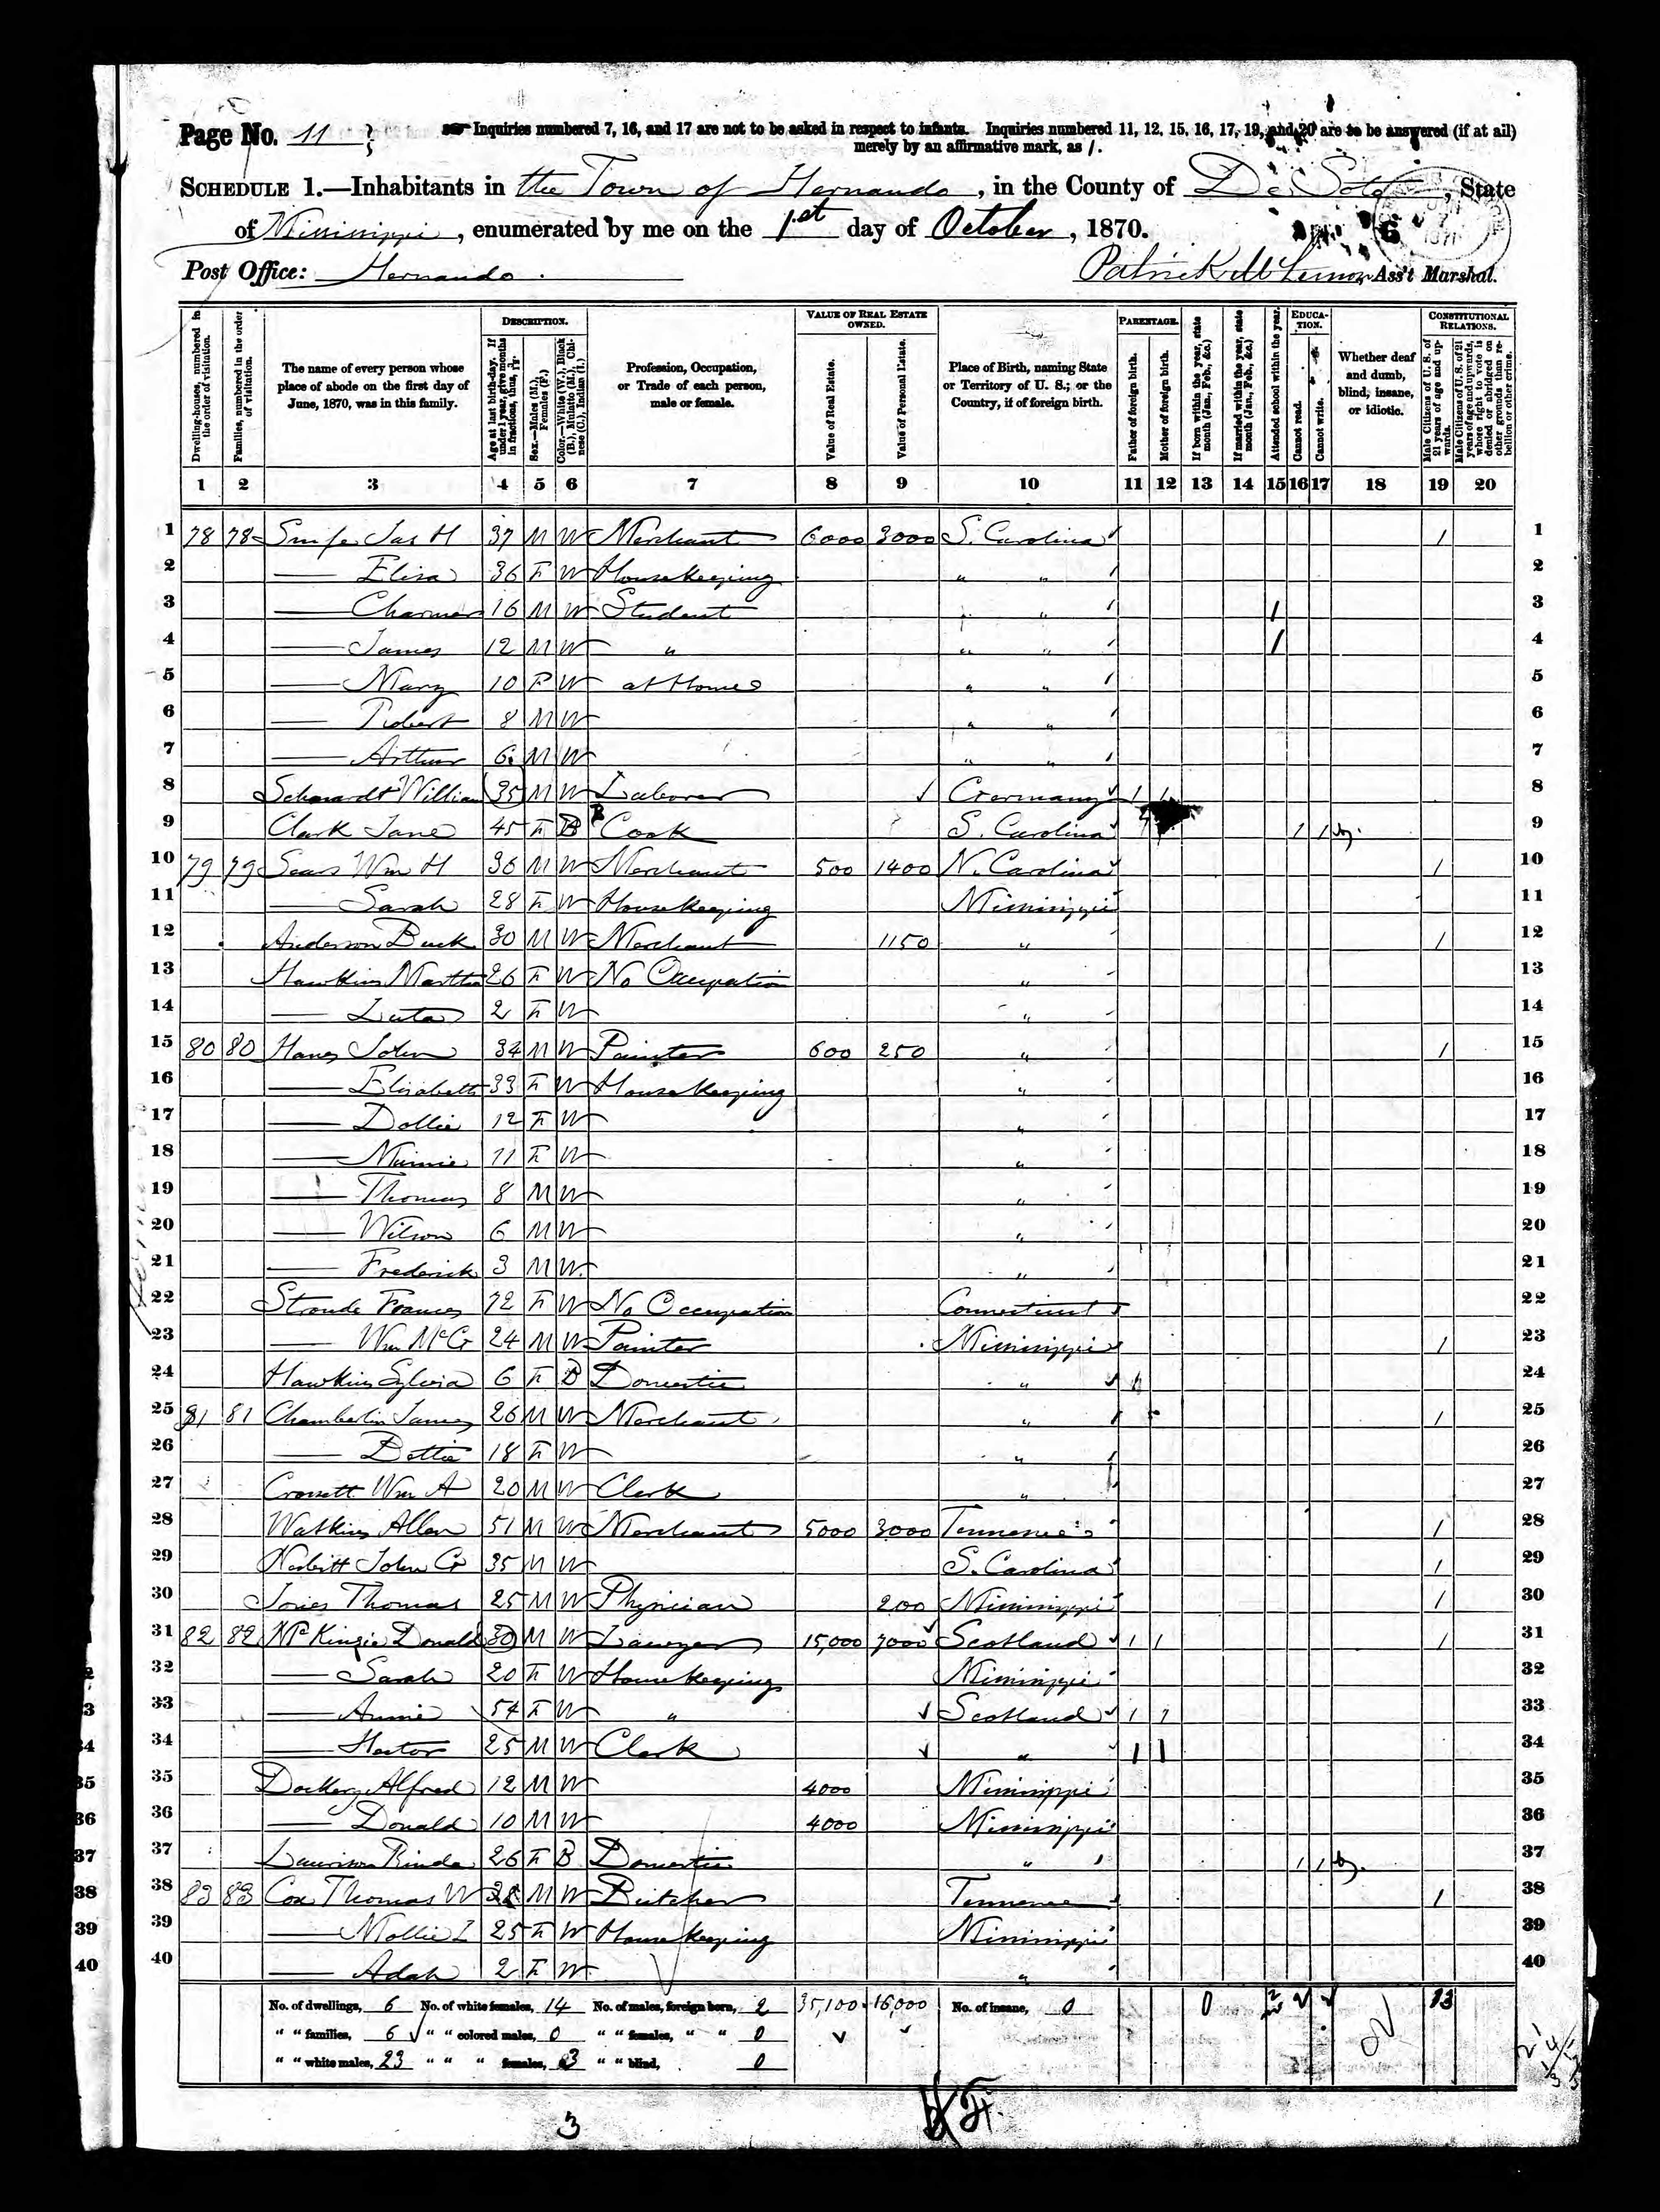 Page No. 11
Inquiries numbered 7, 16, and 17 are not to be asked in respect to infants. Inquiries numbered 11, 12, 15, 16, 17, 19, and 20 are to be answered (if at all)
merely by an affirmative mark, as /.
SCHEDULE 1.—Inhabitants in the Town of Hernando, in the County of De Soto, State
of Mississippi, enumerated by me on the 1st day of October, 1870.
Post Office: Hernando.
Patrick McLemon, Ass't Marshal.
Dwelling-houses, numbered in the order of visitation.
Families, numbered in the order of visitation.
The name of every person whose place of abode on the first day of June, 1870, was in this family.
DESCRIPTION.
Age at last birth-day. If under 1 year, give months in fractions, thus, 3/12.
Sex.—Males (M.), Females (F.)
Color.—White (W.), Black (B.), Mulatto (M.), Chinese (C.), Indian (I.)
Profession, Occupation, or Trade of each person, male or female.
VALUE OF REAL ESTATE OWNED.
Value of Real Estate.
Value of Personal Estate.
Place of Birth, naming State or Territory of U. S.; or the Country, if of foreign birth.
PARENTAGE.
Father of foreign birth.
Mother of foreign birth.
If born within the year, state month (Jan., Feb., &c.)
If married within the year, state month (Jan., Feb., &c.)
Attended school within the year.
EDUCATION.
Cannot read.
Cannot write.
Whether deaf and dumb, blind, insane, or idiotic.
CONSTITUTIONAL RELATIONS.
Male Citizens of U. S. of 21 years of age and upwards.
Male Citizens of U. S. of 21 years of age and upwards, whose right to vote is denied or abridged on other grounds than rebellion or other crime.
1 2 3 4 5 6 7 8 9 10 11 12 13 14 15 16 17 18 19 20
1 78 78 Jas H 37 M W Merchant 6000 3000 S. Carolina / 1
2 — Eliza 36 F W Housekeeping " " 2
3 — 16 M W Student " " / 3
4 — James 12 M W " " " / 4
5 — Mary 10 F W at Home " " 5
6 — Robert 8 M W " " 6
7 — Arthur 6 M W " " 7
8 William 35 M W Laborer Germany / / 8
9 Clark Jane 45 F B Cook S. Carolina / / 9
10 79 79 Sears Wm H 36 M W Merchant 500 1400 N. Carolina / 10
11 — Sarah 28 F W Housekeeping Mississippi 11
12 Anderson Buck 30 M W Merchant 1150 " / 12
13 Hawkins Martha 26 F W No Occupation " 13
14 — 2 F W " 14
15 80 80 John 34 M W Painter 600 250 " / 15
16 — Elisabeth 33 F W Housekeeping " 16
17 — Dollie 12 F W " 17
18 — Minnie 11 F W " 18
19 — Thomas 8 M W " 19
20 — Wilson 6 M W " 20
21 — Frederick 3 M W " 21
22 Stroude Frances 72 F W No Occupation Connecticut 22
23 — Wm McG 24 M W Painter Mississippi / 23
24 Hawkins Sylvia 6 F B Domestic " 24
25 81 81 Chamberlin James 26 M W Merchant " / 25
26 — Dottie 18 F W " 26
27 Crossett Wm A 20 M W Clerk " 27
28 Watkins Allen 51 M W Merchant 5000 3000 Tennessee / 28
29 Nesbitt John G 35 M W S. Carolina / 29
30 Jones Thomas 25 M W Physician 200 Mississippi / 30
31 82 82 McKinzie Donald 30 M W Lawyer 15,000 7000 Scotland / / / 31
32 — Sarah 20 F W Housekeeping Mississippi 32
33 — Annie 54 F W " Scotland / / 33
34 — Hector 25 M W Clerk " / / 34
35 Dockery Alfred 12 M W 4000 Mississippi 35
36 — Donald 10 M W 4000 Mississippi 36
37 26 F B Domestic " / / 37
38 83 83 Cox Thomas W M W Butcher Tennessee / 38
39 — Mollie I 25 F W Housekeeping Mississippi 39
40 — Adah 2 F W " 40
No. of dwellings, 6 No. of white females, 14 No. of males, foreign born, 2 35,100 16,000 No. of insane, 0 0 13
" " families, 6 " " colored males, 0 " " females, " " 0
" " white males, 23 " " " females, 3 " " blind, 0
3